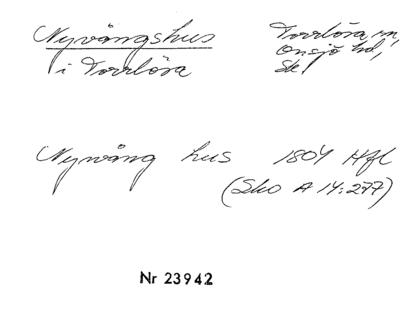 Nyvångshus
i Torrlösa
Torrlösa sn,
Onsjö hd,
Sk
Nyvång hus 1804 Hfl
(Sko A 14:277)
Nr 23942